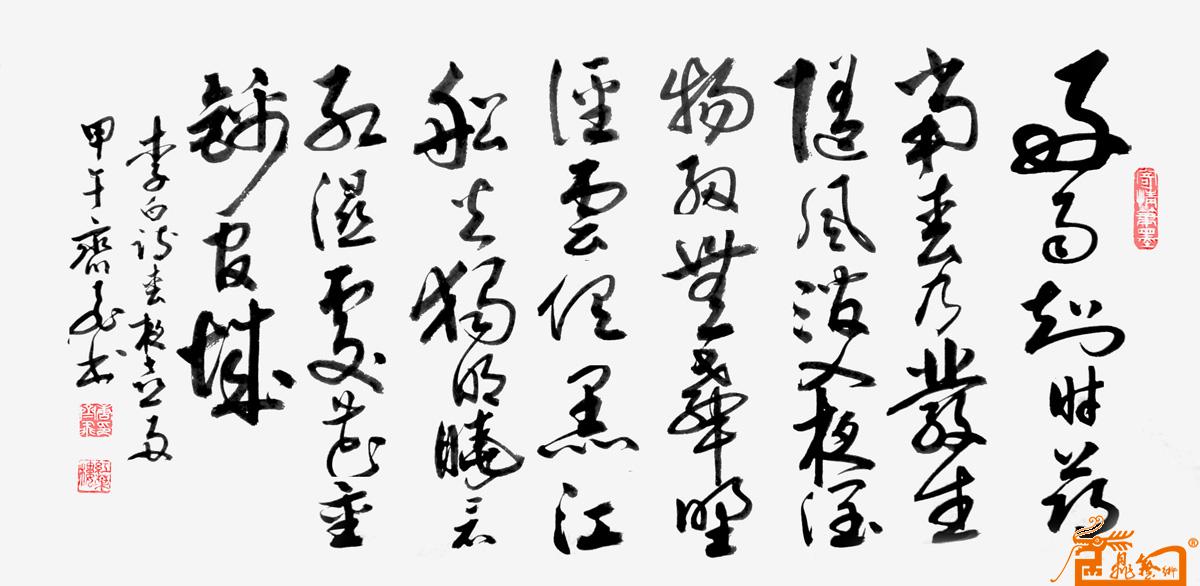 好雨知时節
當春乃發生
隨風潛入夜潤
物細無聲野
徑雲俱黑江
船火獨明曉看
紅濕處花重
錦官城
李白诗春夜喜雨
甲午